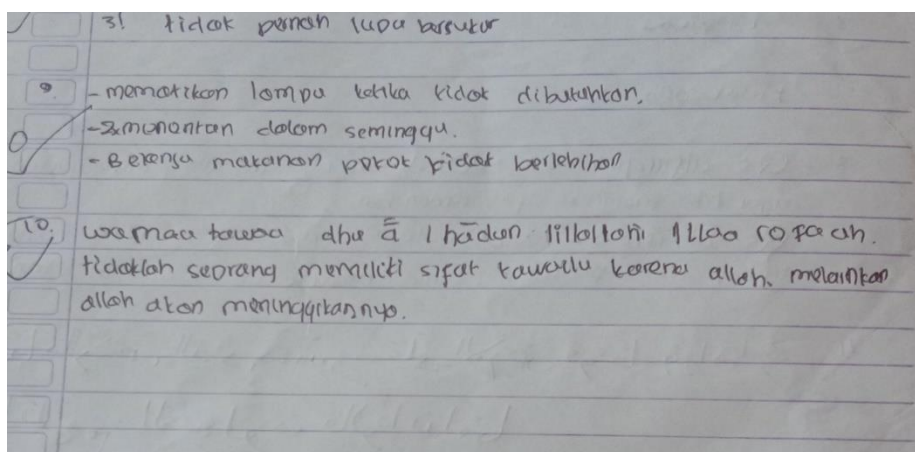 3! tidak pernah lupa bersukur
9. -mematikan lampu ketika tidak dibutuhkan.
-2x munontan dalam seminggu.
-Berensu makanan porot tidak berlebihan
10. wamaa tawaa dhu ā l hādun lillollohi illaa rofaah.
tidaklah seprang memiliki sifat tawadlu karena allah, melainkan
allah akan meninggikannya.